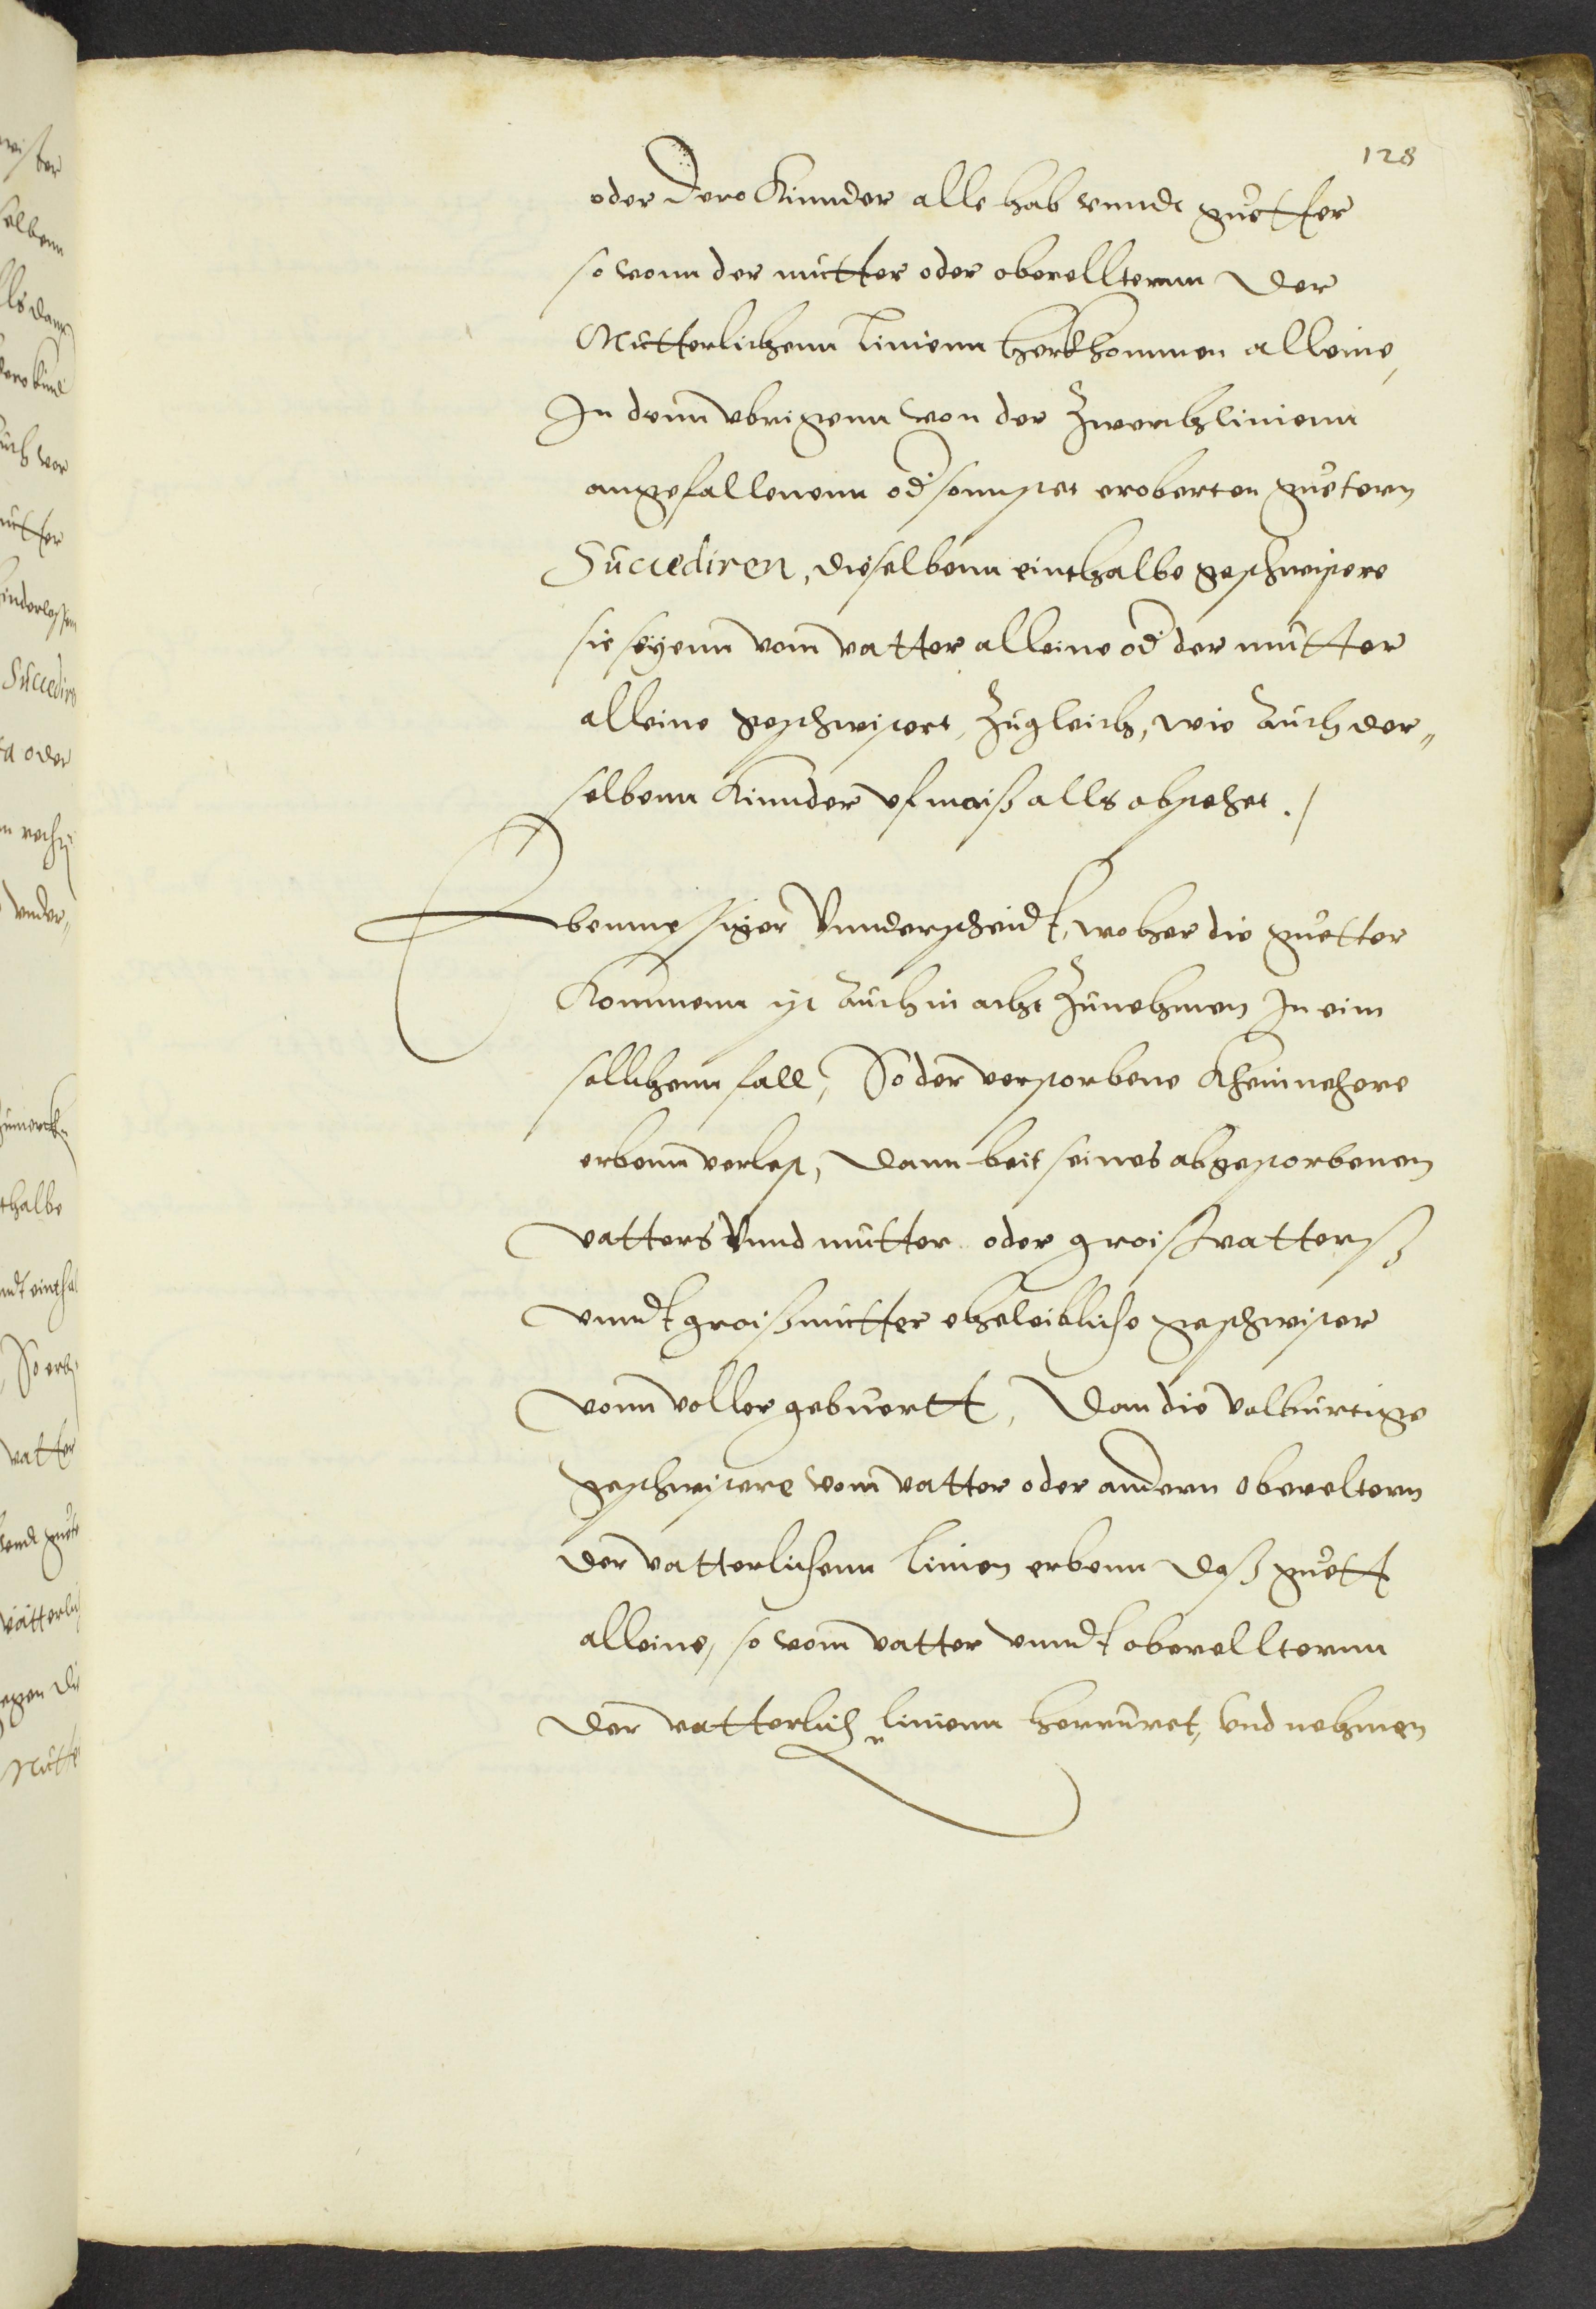 128
oder dero Kinnder alle hab vnndt guetter
so vonn der mutter oder oberellternn der
Mutterlichenn linienn herkhommen alleine,
In denn vbrigenn von der Zwerchlinienn
angefallenenn od sonnstet eroberten guetern
Succediren, dieselbenn einthalbe geschwistere
sie seyenn vom vatter alleine od der mutter
alleine geschwistert, Zugleich, wie auch der„
selbenn Kinnder vf maiß alls obstehet. /
Ebenmessiger Vnnderscheidt, woher die guetter
Kommenn ist auch in acht Zunehmen In eim
sollichenn fall, So der verstorbene Kheinnehere
erbenn verlest, dann beit seines abgestorbenen
vatters Vnnd mutter oder groißvatterß
vnndt groißmutter eheleibliche geschwister
vonn voller gebuertt, Dan die volburtige
geschwistere vom vatter oder andern obereltern
der vatterlichenn linien erbenn daß guett
alleine, so vom vatter vnndt oberelltern
der vatterlich linienn herruret, Vnd nehmen